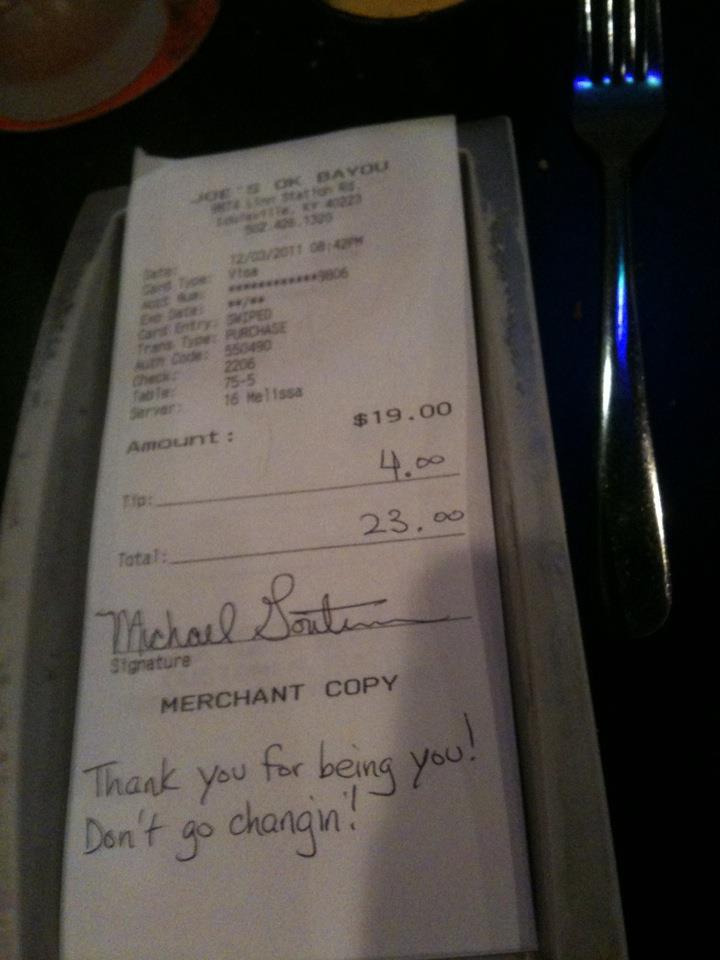 JOE'S OK BAYOU
9874 Linn Station Rd.
Louisville, KY 40223
502.426.1320
Date: 12/03/2011 08:42PM
Card Type: Visa
Acct Num: ************9806
Exp Date: **/**
Card Entry: SWIPED
Trans Type: PURCHASE
Auth Code: 550490
Check: 2206
Table: 75-5
Server: 16 Melissa
Amount: $19.00
Tip: 4.00
Total: 23.00
Michael
Signature
MERCHANT COPY
Thank you for being you!
Don't go changin'!